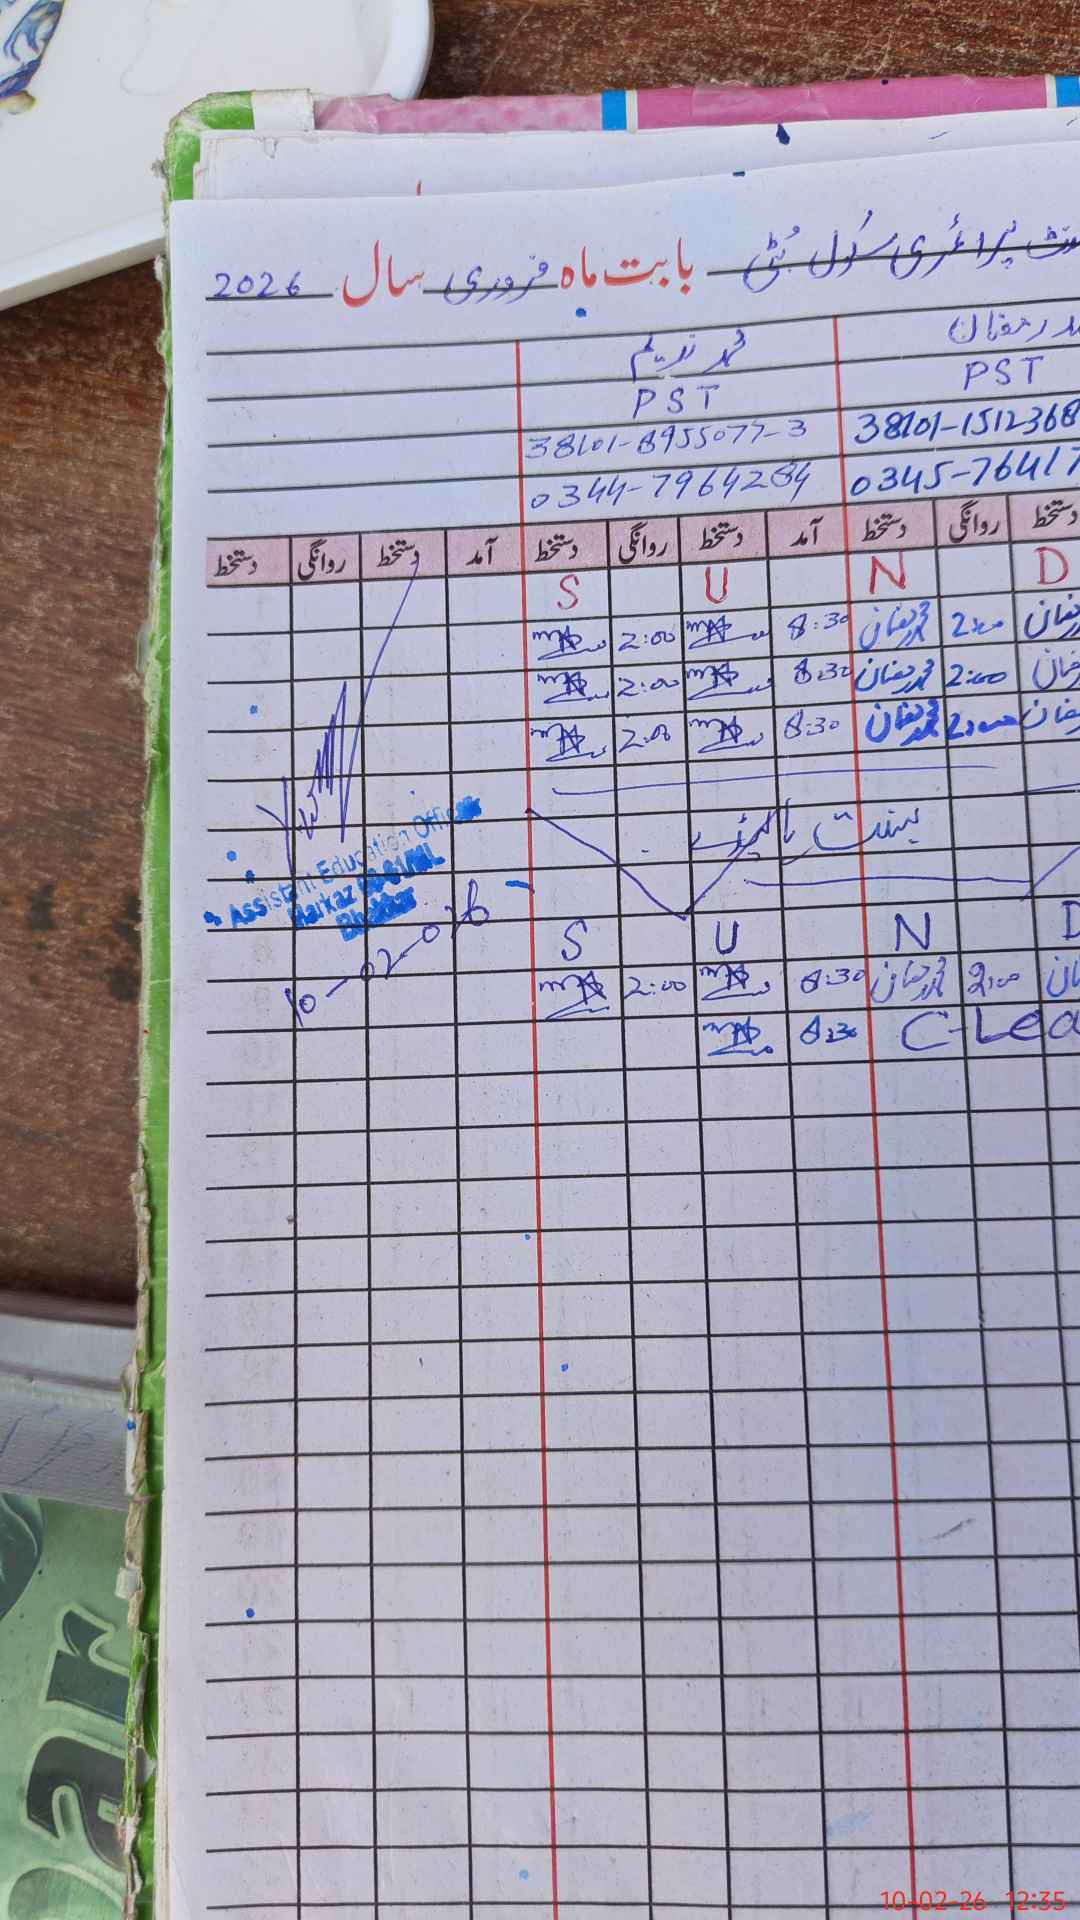 پرائمری سکول بُٹی بابت ماہ فروری سال 2026
محمد ندیم رمضان
PST PST
38101-8955077-3 38101-1512368
0344-7964284 0345-76417
دستخط روانگی دستخط آمد دستخط روانگی دستخط آمد دستخط روانگی دستخط
S U N D
2:00 8:30 محمد رمضان 2:00 رمضان
2:00 8:30 محمد رمضان 2:00 رمضان
2:00 8:30 محمد رمضان 2:00 رمضان
بسنت
Assistent Education Officer
Markaz
Bhakkar
10-02-026
S U N D
2:00 8:30 محمد رمضان 2:00
8:30 C-Lea
ar
10-02-26 12:35